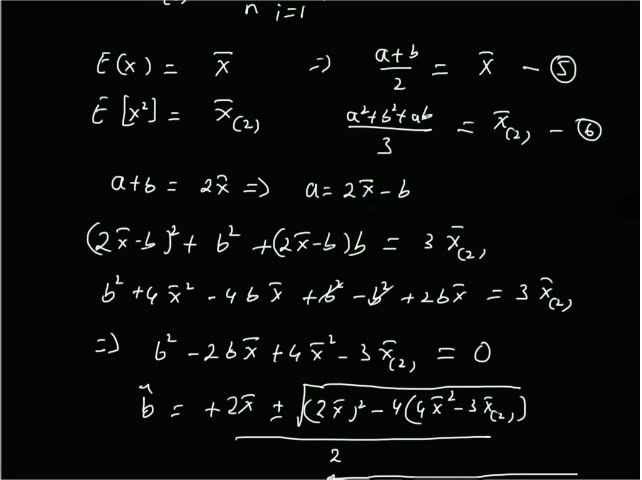 n i=1
E(x) = x̄ ⇒ (a+b)/2 = x̄ – ⑤
E[x²] = x̄₍₂₎ (a²+b²+ab)/3 = x̄₍₂₎ – ⑥
a+b = 2x̄ ⇒ a = 2x̄ - b
(2x̄-b)² + b² + (2x̄-b)b = 3x̄₍₂₎
b² + 4x̄² - 4bx̄ + b² - b² + 2bx̄ = 3x̄₍₂₎
⇒ b² - 2bx̄ + 4x̄² - 3x̄₍₂₎ = 0
b̂ = (+2x̄ ± √((2x̄)² - 4(4x̄² - 3x̄₍₂₎)))/2